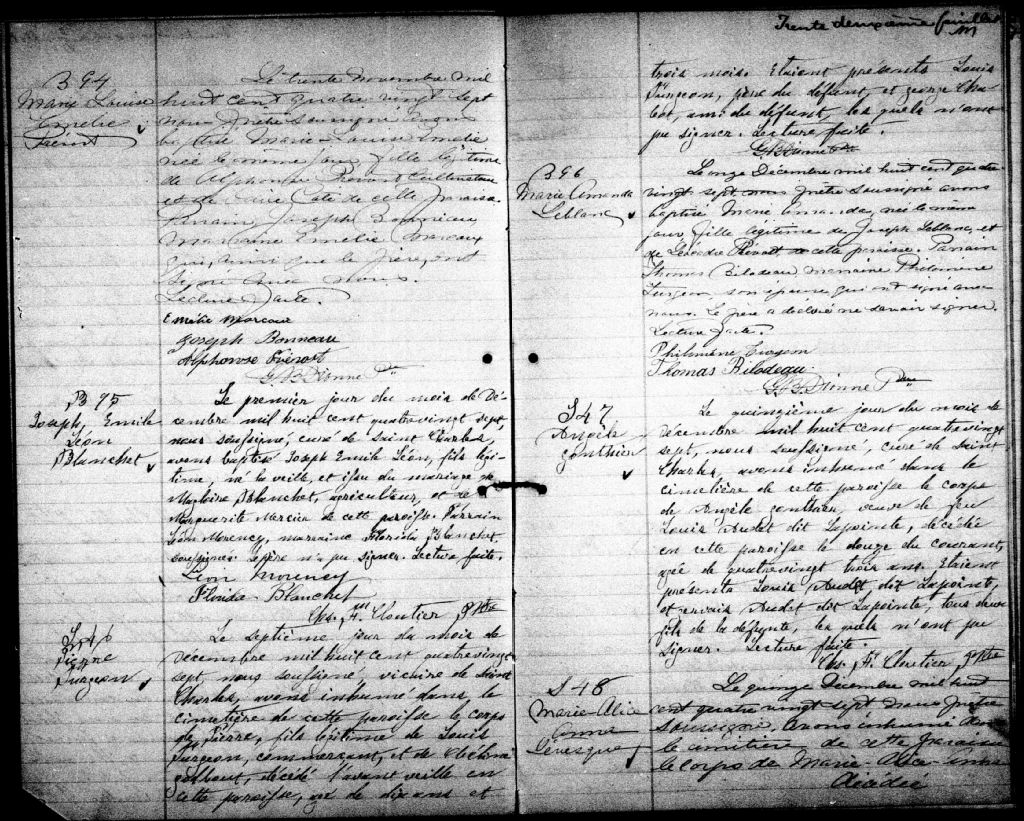 B 94
Marie Louise
Emelie
Le trente novembre mil
huit cent quatre vingt sept
nous prêtre soussigné avons
baptisé Marie Louise Emelie
née le même jour fille légitime
de Alphonse Prévost cultivateur
et de Marie Coté de cette paroisse
Parrain Joseph Bonneau
Marraine Emelie Marcoux
qui, ainsi que le père, ont
signé avec nous.
Lecture faite.
Emélie Marcoux
Joseph Bonneau
Alphonse Prévost
G. Dionne Ptre
B 95
Joseph, Emile
Léon
Blanchet
Le premier jour du mois de Dé-
cembre mil huit cent quatrevingt sept,
nous soussigné, curé de Saint Charles,
avons baptisé Joseph Emile Léon, fils légi-
time, né la veille, et issu du mariage de
Magloire Blanchet, agriculteur, et de
Marguerite Mercier de cette paroisse. Parrain
Léon Morency, marraine Florida Blanchet
soussignés le père n'a pu signer. Lecture faite.
Léon Morency
Florida Blanchet
Chs. F. Cloutier Ptre
S 46
Pierre
Turgeon
Le septième jour du mois de
décembre mil huit cent quatrevingt
sept, nous soussigné, vicaire de Saint
Charles, avons inhumé dans le
cimetière de cette paroisse le corps
de Pierre, fils légitime de Louis
Turgeon, commerçant, et de
décédé l'avant veille en
cette paroisse, agé de dix ans et
Trente deuxième feuillet
trois mois. Etaient présents Louis
Turgeon, père du défunt, et George Cha-
bot, ami du défunt, lesquels n'ont
pu signer. Lecture faite.
G. Dionne Ptre
B 96
Marie Amanda
Leblanc
Le onze Décembre mil huit cent quatre
vingt sept nous prêtre soussigné avons
baptisé Marie Amanda, née le même
jour fille légitime de Joseph Leblanc, et
de Léocadie Prévost de cette paroisse. Parrain
Thomas Bilodeau marraine Philomène
Turgeon, son épouse, qui ont signé avec
nous. Le père a déclaré ne savoir signer.
Lecture faite.
Philomène Turgeon
Thomas Bilodeau
G. Dionne Ptre
S 47
Angèle
Gonthier
Le quinzième jour du mois de
décembre mil huit cent quatrevingt
sept, nous soussigné, curé de Saint
Charles, avons inhumé dans le
cimetière de cette paroisse le corps
de Angèle Gonthier, veuve de feu
Louis Audet dit Lapointe, décédée
en cette paroisse le douze du courant,
agée de quatrevingt trois ans. Etaient
présents Louis Audet dit Lapointe,
et Audet dit Lapointe, tous deux
fils de la défunte, lesquels n'ont pu
signer. Lecture faite.
Chs. F. Cloutier Ptre
S 48
Marie-Alice
Anna
Lévesque
Le quinze Décembre mil huit
cent quatre vingt sept nous prêtre
soussigné, avons inhumé dans
le cimetière de cette paroisse
le corps de Marie-Alice-Anna
décédée